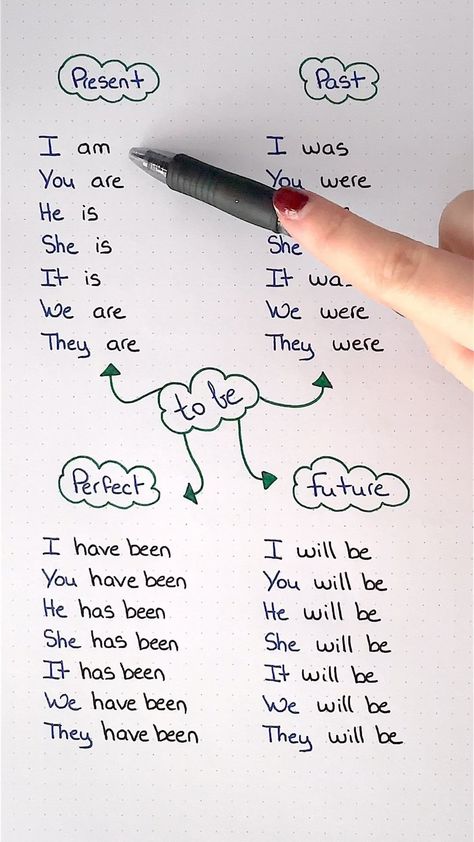 Present
I am
You are
He is
She is
It is
We are
They are
Past
I was
You were
She
It was
We were
They were
to be
Perfect
I have been
You have been
He has been
She has been
It has been
We have been
They have been
Future
I will be
You will be
He will be
She will be
It will be
We will be
They will be